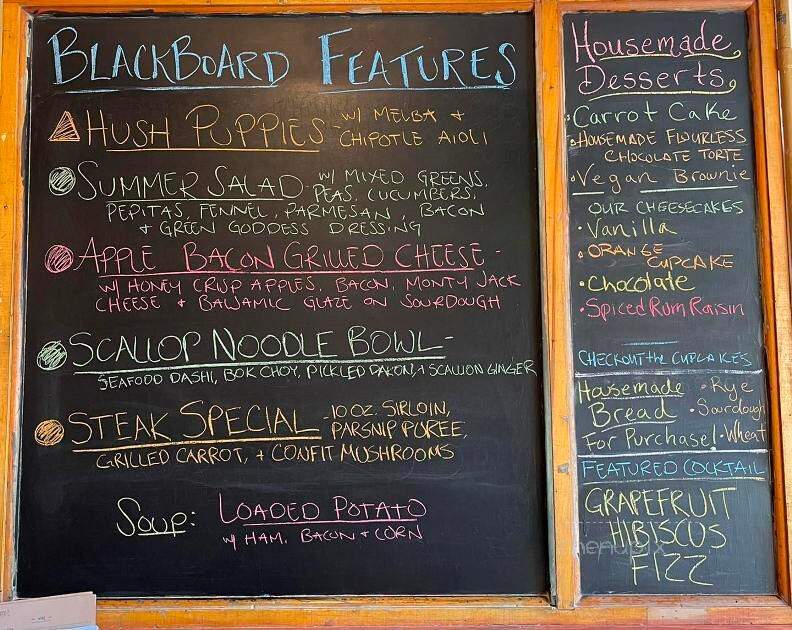 BLACKBOARD FEATURES
HUSH PUPPIES - W/ MELBA +
CHIPOTLE AIOLI
SUMMER SALAD - W/ MIXED GREENS,
PEAS, CUCUMBERS,
PEPITAS, FENNEL, PARMESAN, BACON
+ GREEN GODDESS DRESSING
APPLE BACON GRILLED CHEESE -
W/ HONEY CRISP APPLES, BACON, MONTY JACK
CHEESE + BALSAMIC GLAZE ON SOURDOUGH
SCALLOP NOODLE BOWL -
SEAFOOD DASHI, BOK CHOY, PICKLED DAKON, + SCALLION GINGER
STEAK SPECIAL - 10 OZ. SIRLOIN,
PARSNIP PUREE,
GRILLED CARROT, + CONFIT MUSHROOMS
SOUP: LOADED POTATO
W/ HAM, BACON + CORN
Housemade
Desserts
• Carrot Cake
• HOUSEMADE FLOURLESS
CHOCOLATE TORTE
• Vegan Brownie
OUR CHEESECAKES
• Vanilla
• ORANGE
CUPCAKE
• Chocolate
• Spiced Rum Raisin
CHECKOUT the CUPCAKES
Housemade • Rye
Bread • Sourdough
For Purchase! • Wheat
FEATURED COCKTAIL
GRAPEFRUIT
HIBISCUS
FIZZ
menupix